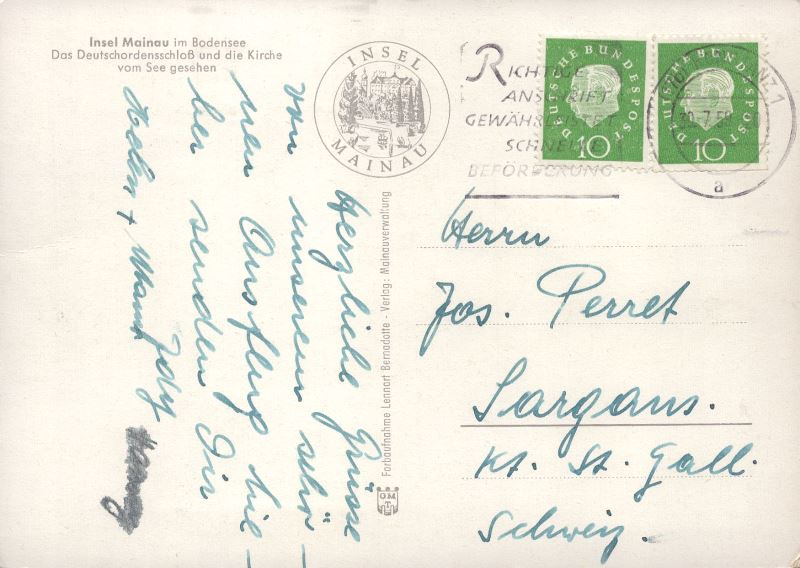 Insel Mainau im Bodensee
Das Deutschordensschloß und die Kirche
vom See gesehen
INSEL
MAINAU
RICHTIGE
ANSCHRIFT
GEWÄHRLEISTET
SCHNELLE
BEFÖRDERUNG
DEUTSCHE BUNDESPOST
10
DEUTSCHE BUNDESPOST
10
30.-7.59
a
Herzliche Grüsse
von unserem schö-
nen Ausflug hie-
her senden Dir
Farbaufnahme Lennart Bernadotte - Verlag: Mainauverwaltung
Herrn
Jos. Perret
Sargans.
Kt. St. Gall.
Schweiz.